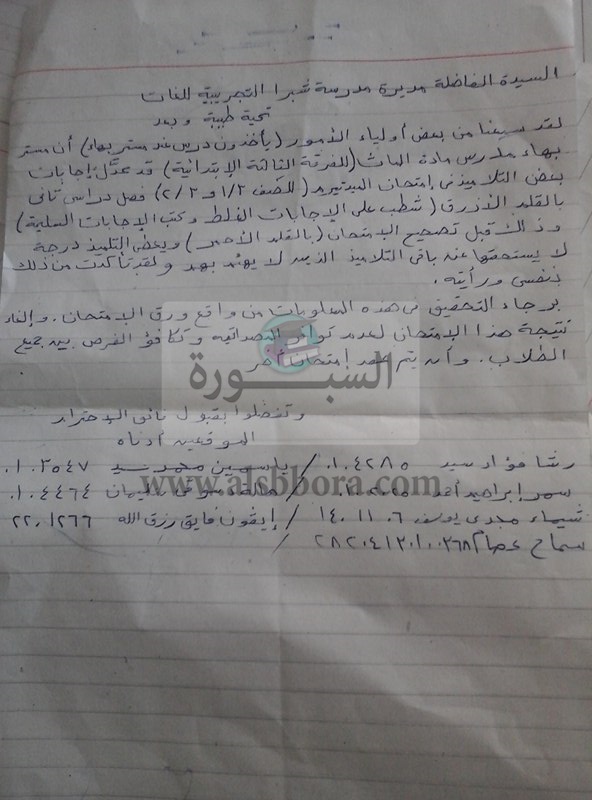 السيدة الفاضلة مديرة مدرسة شبرا التجريبية للغات
تحية طيبة وبعد
لقد سمعنا من بعض أولياء الأمور (يأخذون درس عند مستر بهاء) أن مستر
بهاء مدرس مادة الماث (للفرقة الثالثة الإبتدائية) قد عدَّل إجابات
بعض التلاميذ فى إمتحان الميدتيرم (للصف ١/٣ و ٢/٣) فصل دراسى ثانى
بالقلم الأزرق (شطب على الإجابات الغلط وكتب الإجابات السليمة)
وذلك قبل تصحيح الإمتحان (بالقلم الأحمر) ويعطى التلميذ درجة
لا يستحقها عند باقى التلاميذ الذين لا يهتم بهم ولقد تأكدت من ذلك
بنفسى ورأيته.
برجاء التحقيق فى هذه المعلومات من واقع ورق الإمتحان. وإلغاء
نتيجة هذا الإمتحان لعدم توافر المصداقية وتكافؤ الفرص بين جميع
الطلاب. وأن يتم عقد إمتحان آخر
السبورة
وتفضلوا بقبول فائق الإحترام
الموقعين أدناه
رشا فؤاد سيد ٠١٠٤٢٨٥ / ياسمين محمد سيد ٠١٠٣٥٤٧
www.alsbbora.com
سمر إبراهيم ٠١٠٤٤٦٤
شيماء مجدى يوسف ١٤٠١١٠٦ / إيفون فايق رزق الله ٢٢٠١٢٦٦
سماح عصام ٢٨٢٠٤١٢٠١٠٠٢٦٨